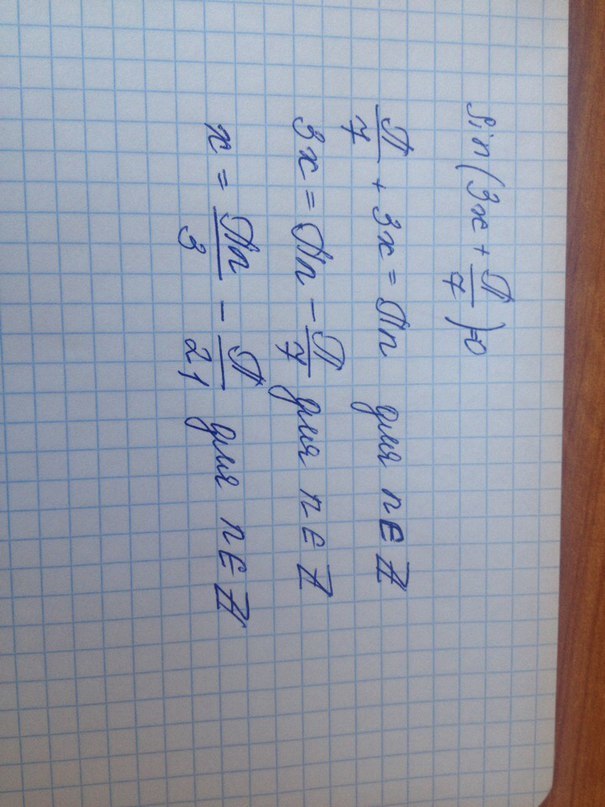 sin(3x + π/7)=0
π/7 + 3x = πn для n∈Z
3x = πn − π/7 для n∈Z
x = πn/3 − π/21 для n∈Z